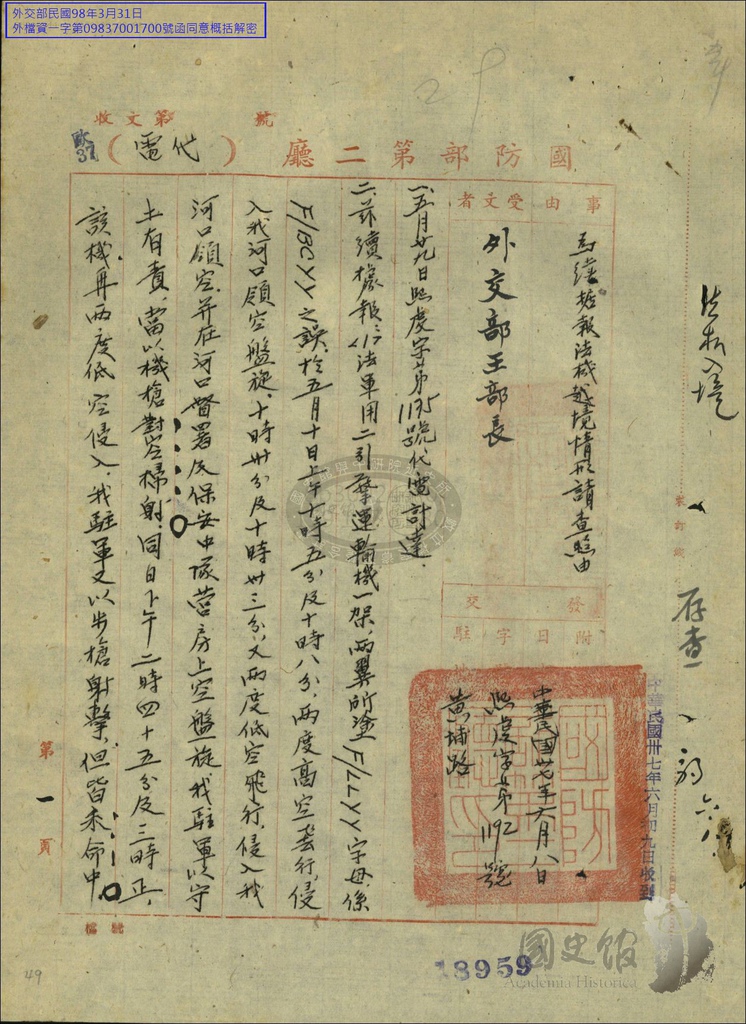 外交部民國98年3月31日
外檔資一字第09837001700號函同意概括解密
收文第 號
歐37
國防部第二廳（代電）
事由 受文者
為續據報法機越境情形請查照由
外交部王部長
發交
附 日 字 駐
中華民國卅七年六月八日
字第1192號
黃埔路
一、五月廿九日 字第1175號代電計達、
二、茲續據報：法軍用二引擎運輸機一架，兩翼所塗F/LLXY字母，係
F/BCYY之誤，於五月十日上午十時五分及十時八分，兩度高空飛行，侵
入我河口領空盤旋，十時卅分及十時卅三分，又兩度低空飛行，侵入我
河口領空，并在河口督署及保安中隊營房上空盤旋，我駐軍以守
土有責，當以機槍對空掃射，同日下午二時四十五分及三時正，
該機再兩度低空侵入，我駐軍又以步槍射擊，但皆未命中。
第一頁
檔號
法机入境
存查
裝訂線
中華民國卅七年六月初九日收到
18959
49
國史館
Academia Historica